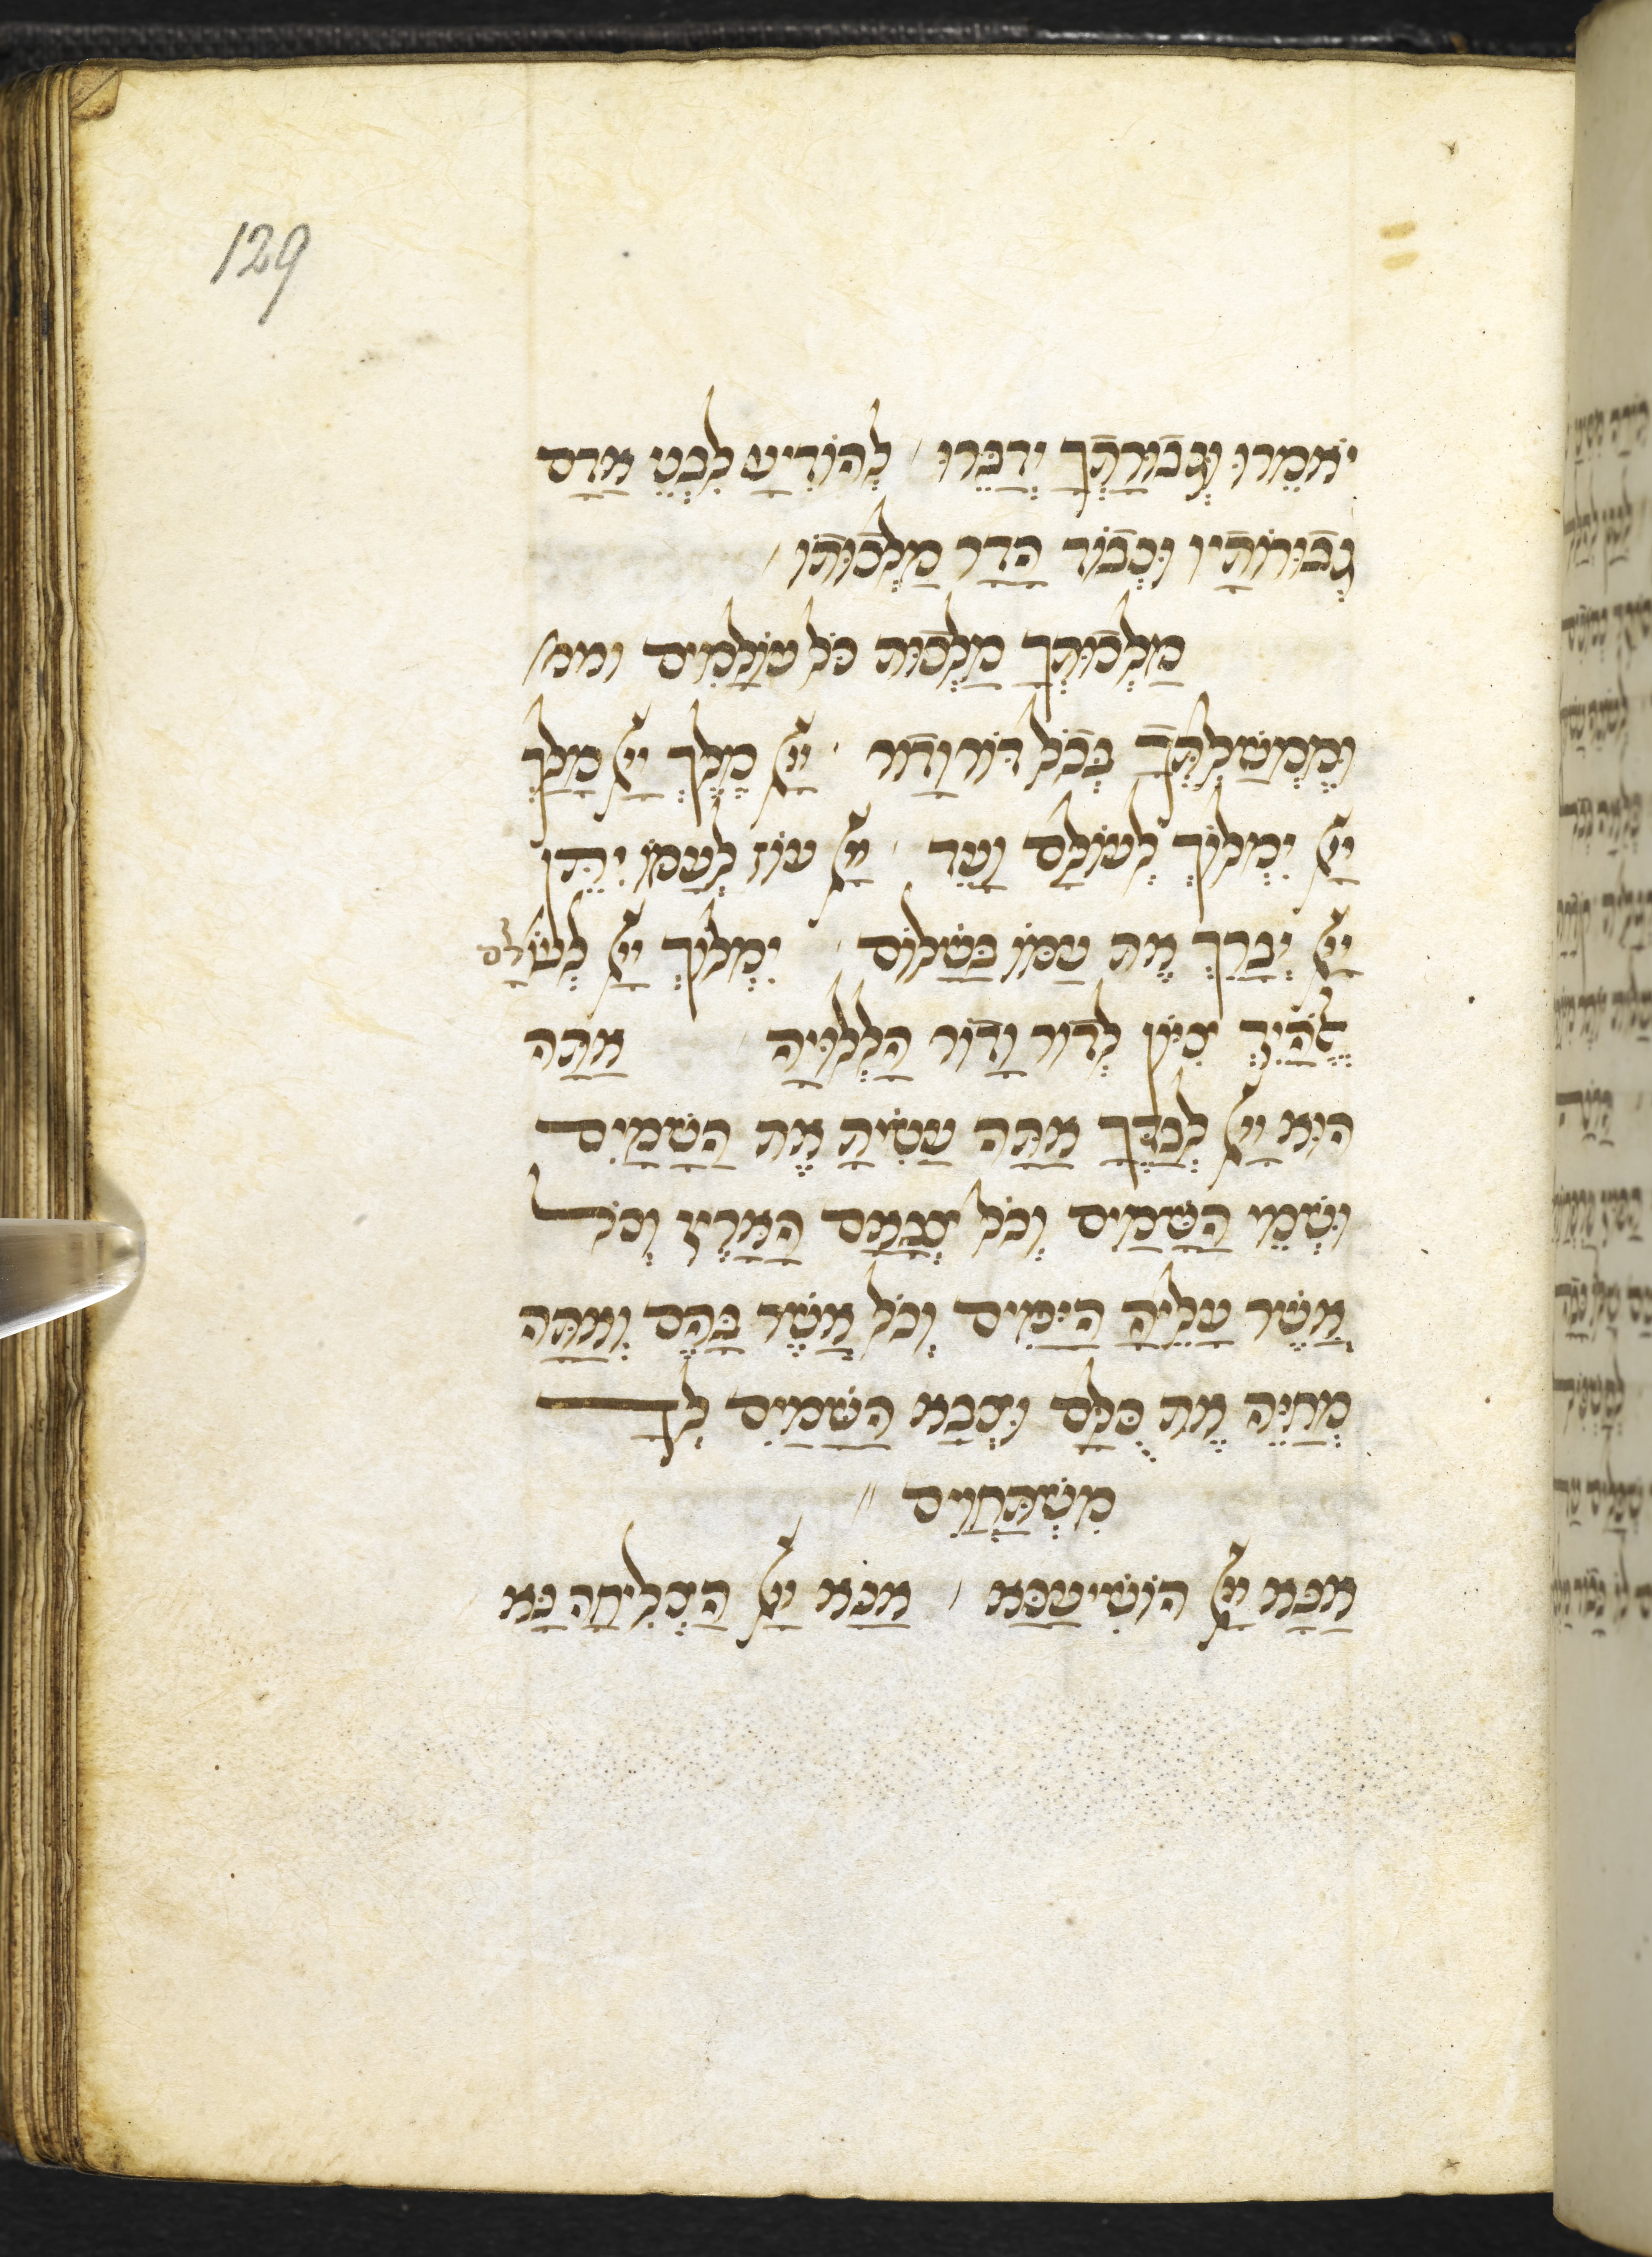 129
יֹאמֵרוּ וּגְבוּרָתְךָ יְדַבֵּרוּ לְהוֹדִיעַ לִבְנֵי אָדָם
גְּבוּרוֹתָיו וּכְבוֹד הֲדַר מַלְכוּתוֹ
מַלְכוּתְךָ מַלְכוּת כׇּל עוֹלָמִים וממ
וּמֶמְשַׁלְתְּךָ בְּכׇל דּוֹר וָדוֹר יְיָ מֶלֶךְ יְיָ מָלָךְ
יְיָ יִמְלוֹךְ לְעוֹלָם וָעֶד יְיָ עוֹז לְעַמּוֹ יִתֵּן
יְיָ יְבָרֵךְ אֶת עַמּוֹ בַשָּׁלוֹם יִמְלוֹךְ יְיָ לְעוֹלָם
אֱלֹהַיִךְ צִיּוֹן לְדוֹר וָדוֹר הַלְלוּיָהּ אַתָּה
הוּא יְיָ לְבַדֶּךָ אַתָּה עָשִׂיתָ אֶת הַשָּׁמַיִם
וּשְׁמֵי הַשָּׁמַיִם וְכׇל צְבָאָם הָאָרֶץ וְכׇל
אֲשֶׁר עָלֶיהָ הַיַּמִּים וְכׇל אֲשֶׁר בָּהֶם וְאַתָּה
מְחַיֶּה אֶת כֻּלָּם וּצְבָא הַשָּׁמַיִם לְךָ
מִשְׁתַּחֲוִים
אָנָּא יְיָ הוֹשִׁיעָנָּא אָנָּא יְיָ הַצְלִיחָה נָּא